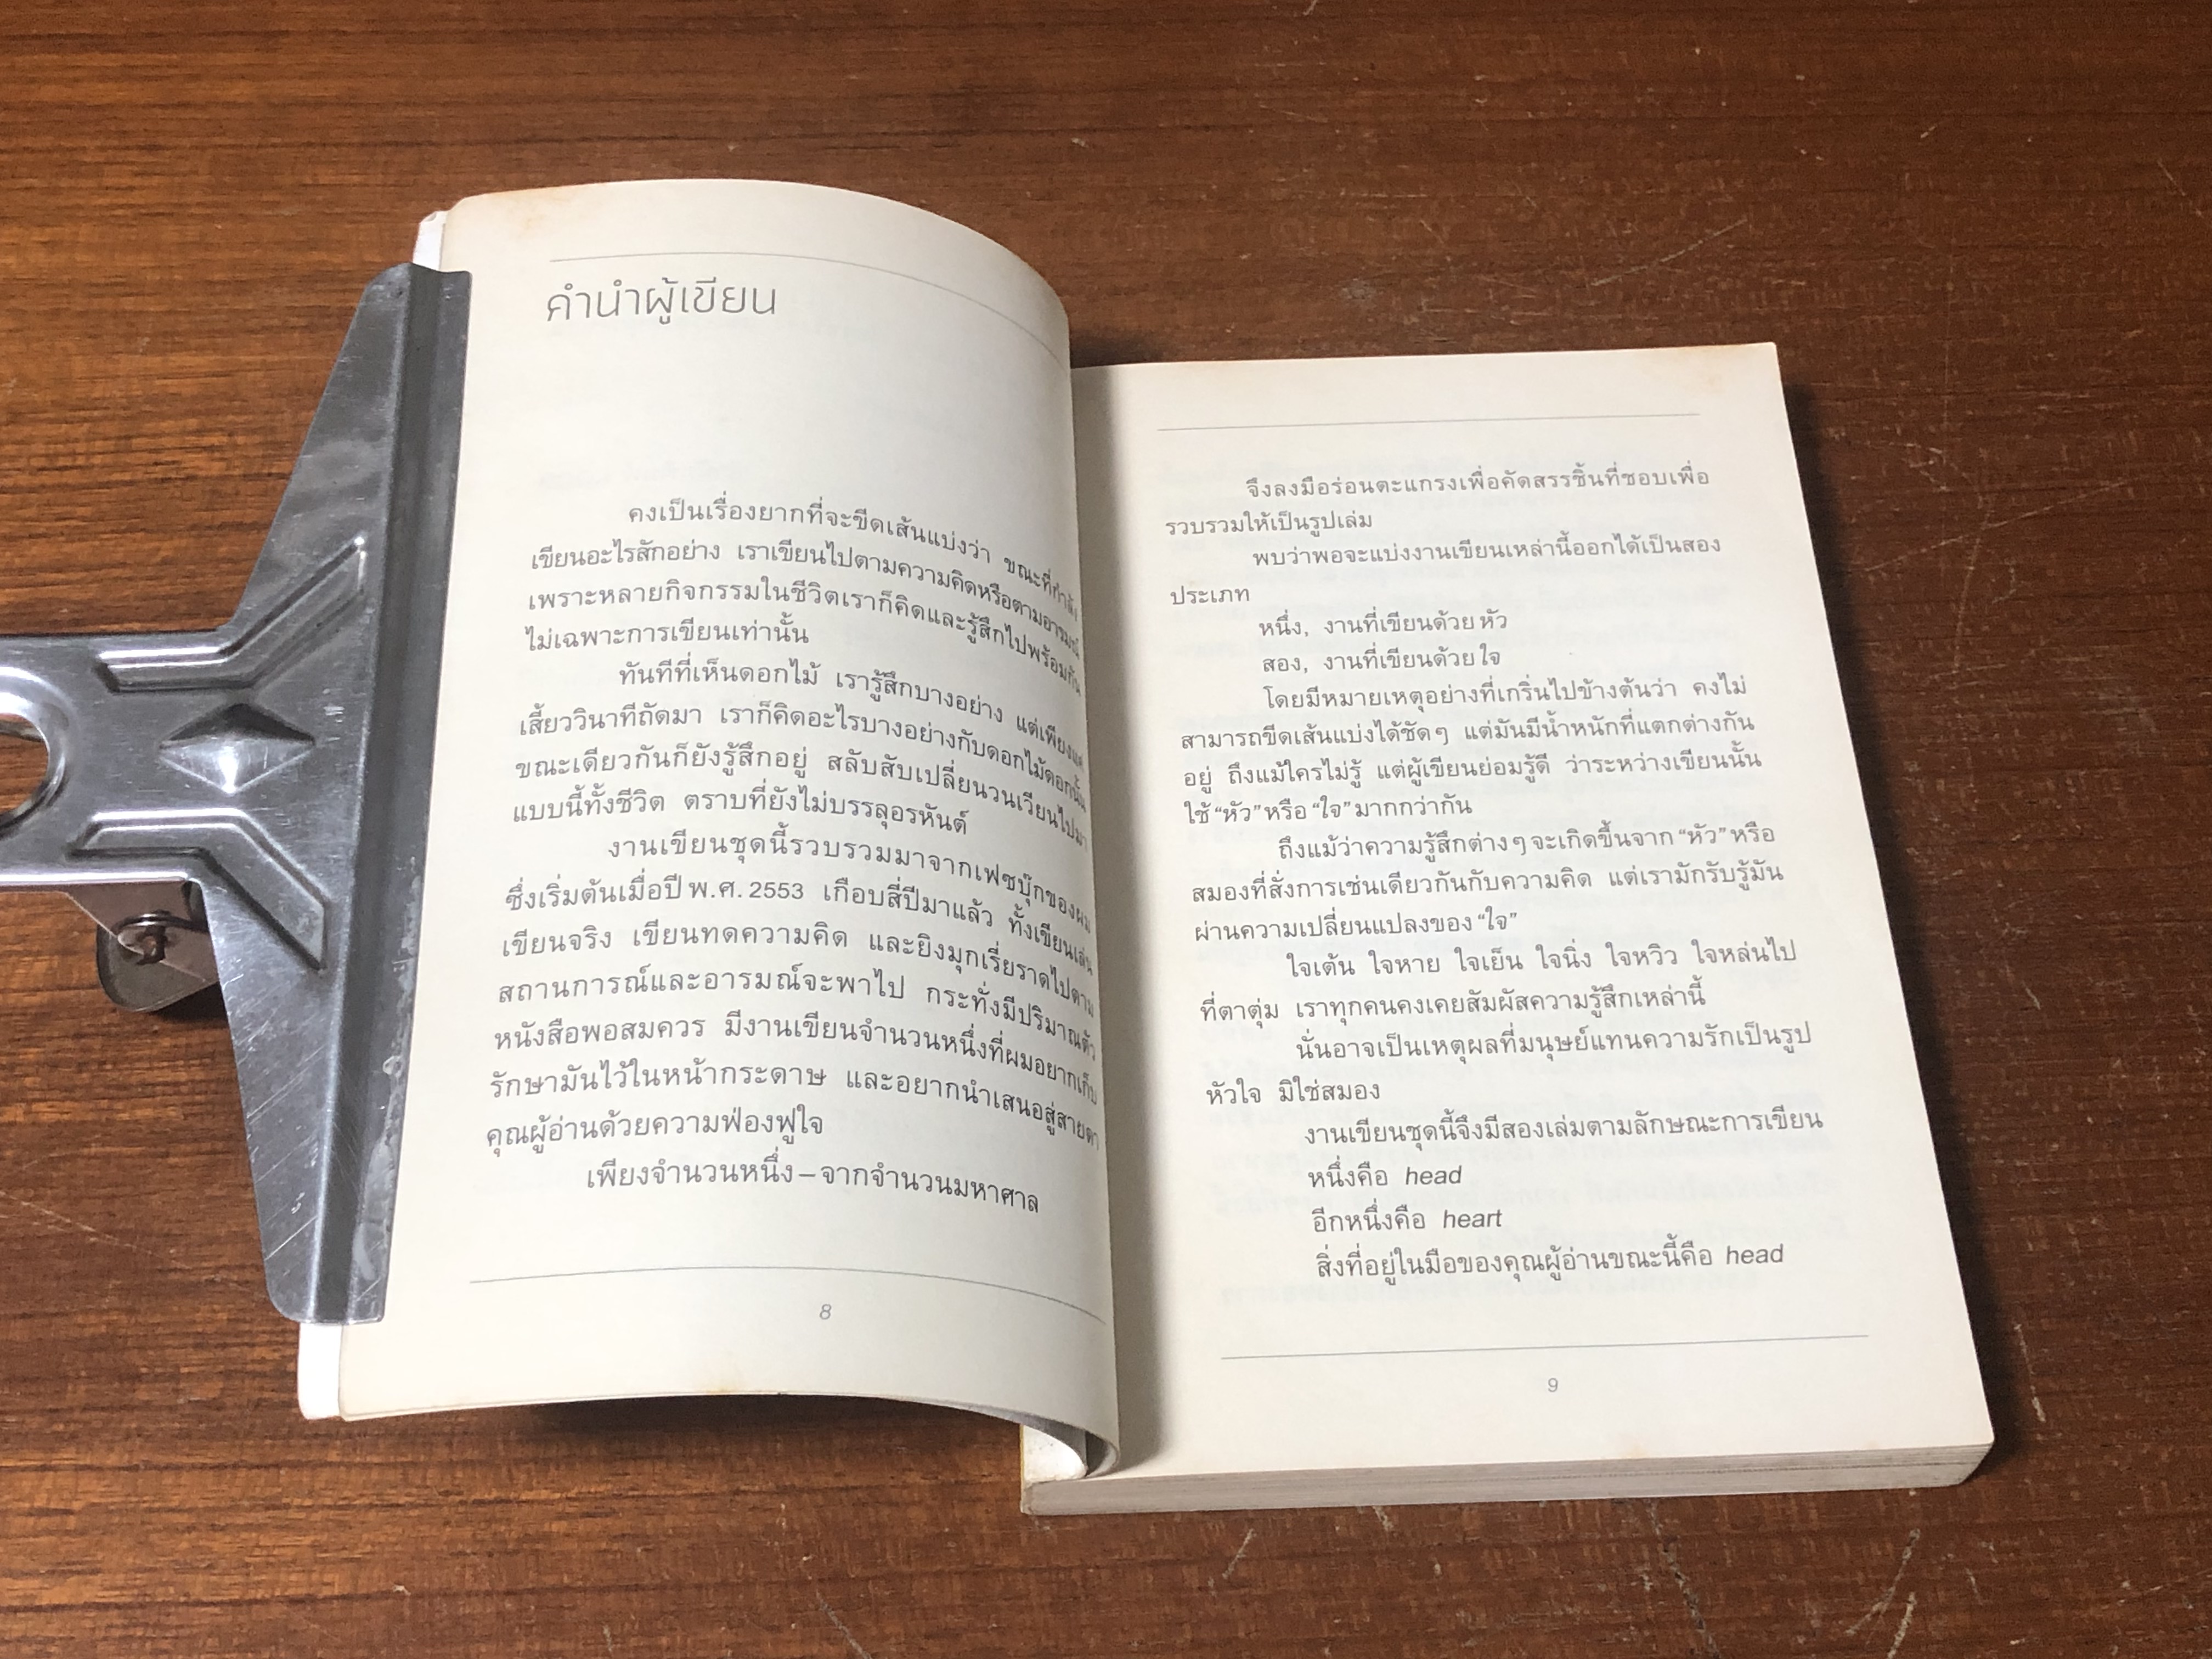 คำนำผู้เขียน
คงเป็นเรื่องยากที่จะขีดเส้นแบ่งว่า ขณะที่กำลัง
เขียนอะไรสักอย่าง เราเขียนไปตามความคิดหรือตามอารมณ์
เพราะหลายกิจกรรมในชีวิตเราก็คิดและรู้สึกไปพร้อมกัน
ไม่เฉพาะการเขียนเท่านั้น
ทันทีที่เห็นดอกไม้ เรารู้สึกบางอย่าง แต่เพียงแค่
เสี้ยววินาทีถัดมา เราก็คิดอะไรบางอย่างกับดอกไม้ดอกนั้น
ขณะเดียวกันก็ยังรู้สึกอยู่ สลับสับเปลี่ยนวนเวียนไปมา
แบบนี้ทั้งชีวิต ตราบที่ยังไม่บรรลุอรหันต์
งานเขียนชุดนี้รวบรวมมาจากเฟซบุ๊กของผม
ซึ่งเริ่มต้นเมื่อปี พ.ศ. 2553 เกือบสี่ปีมาแล้ว ทั้งเขียนเล่น
เขียนจริง เขียนทดความคิด และยิงมุกเรี่ยราดไปตาม
สถานการณ์และอารมณ์จะพาไป กระทั่งมีปริมาณตัว
หนังสือพอสมควร มีงานเขียนจำนวนหนึ่งที่ผมอยากเก็บ
รักษามันไว้ในหน้ากระดาษ และอยากนำเสนอสู่สายตา
คุณผู้อ่านด้วยความฟ่องฟูใจ
เพียงจำนวนหนึ่ง – จากจำนวนมหาศาล
8
จึงลงมือร่อนตะแกรงเพื่อคัดสรรชิ้นที่ชอบเพื่อ
รวบรวมให้เป็นรูปเล่ม
พบว่าพอจะแบ่งงานเขียนเหล่านี้ออกได้เป็นสอง
ประเภท
หนึ่ง, งานที่เขียนด้วยหัว
สอง, งานที่เขียนด้วยใจ
โดยมีหมายเหตุอย่างที่เกริ่นไปข้างต้นว่า คงไม่
สามารถขีดเส้นแบ่งได้ชัดๆ แต่มันมีน้ำหนักที่แตกต่างกัน
อยู่ ถึงแม้ใครไม่รู้ แต่ผู้เขียนย่อมรู้ดี ว่าระหว่างเขียนนั้น
ใช้ “หัว” หรือ “ใจ” มากกว่ากัน
ถึงแม้ว่าความรู้สึกต่างๆ จะเกิดขึ้นจาก “หัว” หรือ
สมองที่สั่งการเช่นเดียวกันกับความคิด แต่เรามักรับรู้มัน
ผ่านความเปลี่ยนแปลงของ “ใจ”
ใจเต้น ใจหาย ใจเย็น ใจนิ่ง ใจหวิว ใจหล่นไป
ที่ตาตุ่ม เราทุกคนคงเคยสัมผัสความรู้สึกเหล่านี้
นั่นอาจเป็นเหตุผลที่มนุษย์แทนความรักเป็นรูป
หัวใจ มิใช่สมอง
งานเขียนชุดนี้จึงมีสองเล่มตามลักษณะการเขียน
หนึ่งคือ head
อีกหนึ่งคือ heart
สิ่งที่อยู่ในมือของคุณผู้อ่านขณะนี้คือ head
9